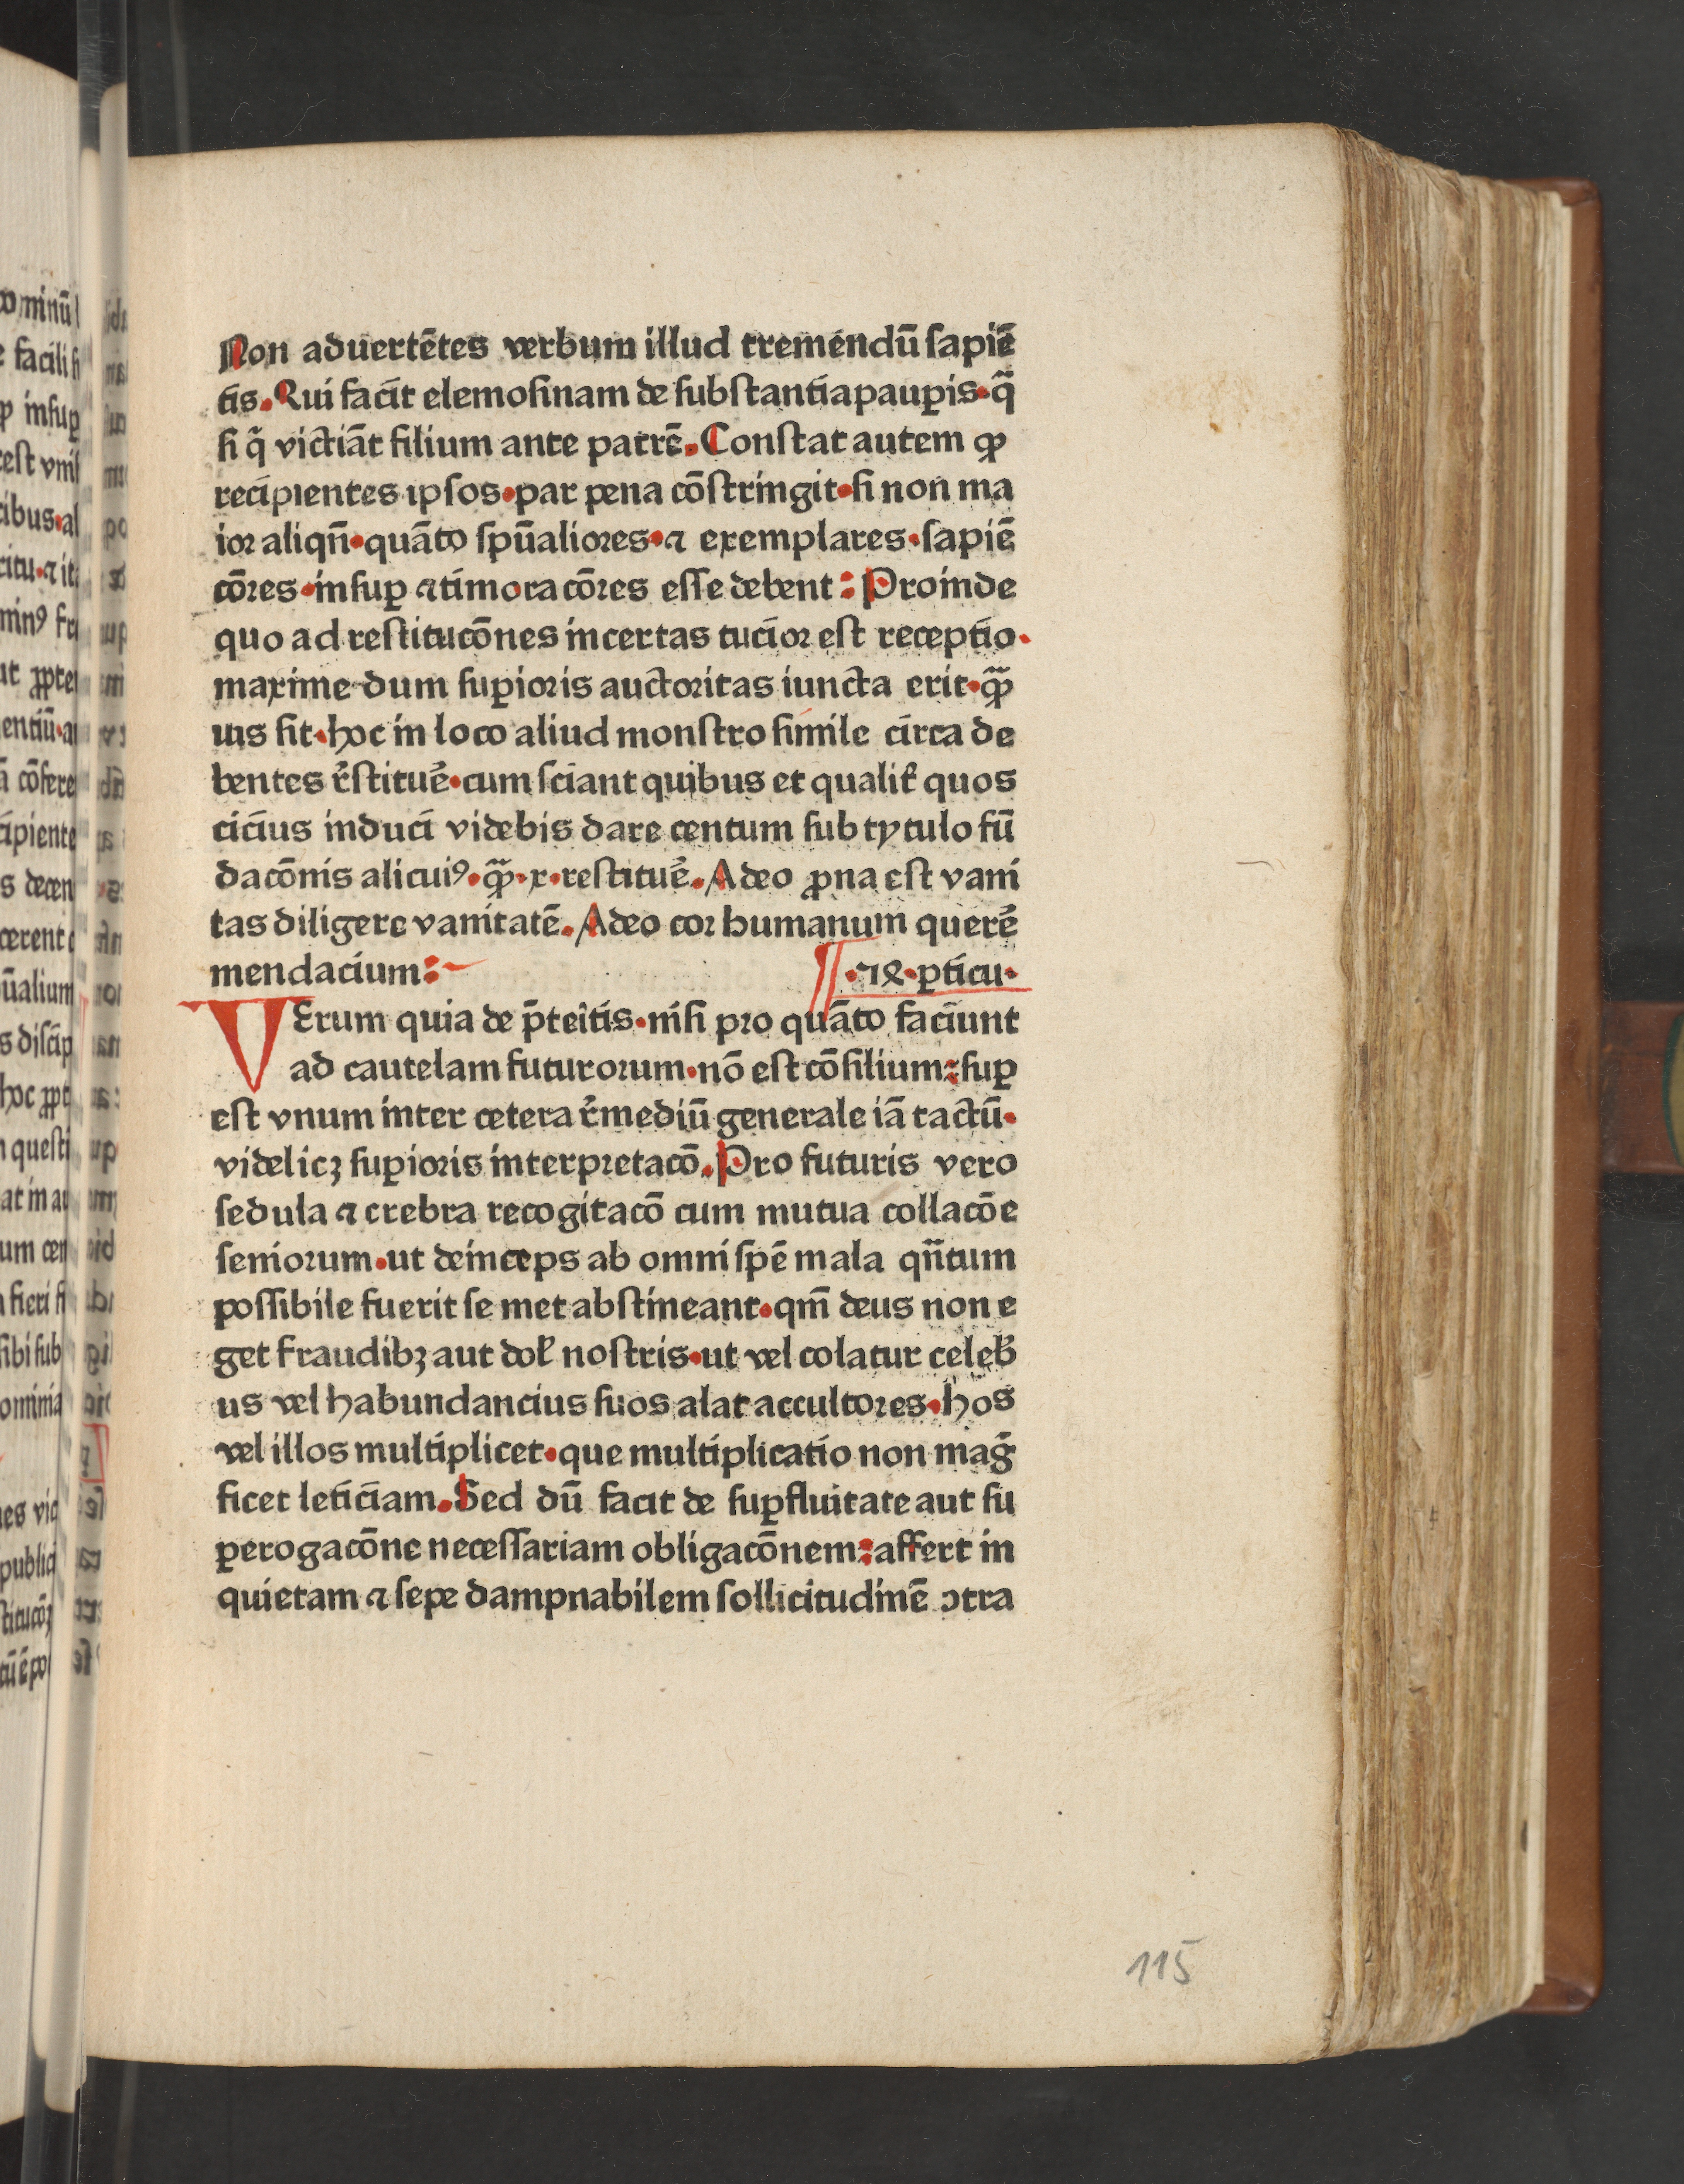 Non aduertētes verbum illud tremendū ſapiē
tis. Qui facit elemoſinam de ſubſtantia paup̲is·q̄
ſi q̄ victiāt filium ante patrē. Conſtat autem ꝙ
recipientes ipſos·par pena cōſtringit·ſi non ma
ior aliqn̄·quāto ſpūaliores·⁊ exemplares·ſapiē
cōres·inſuꝑ ⁊ timoracōres eſſe debent: Proinde
quo ad reſtitucōnes incertas tucior est receptio·
maxime dum ſuꝑioris auctoritas iuncta erit·ꝙ̄
uis ſit·hoc in loco aliud monſtro ſimile circa de
bentes r̄ſtituē·cum ſciant quibus et qualit̄ quos
cicius induci videbis dare centum ſub tytulo fū
dacōnis alicuiꝰ·ꝙ̄·x·reſtituē. Adeo ꝓna eſt vani
tas diligere vanitatē. Adeo cor humanum querē
mendacium:
¶·19·ꝑticu·
VErum quia de p̄teītis·niſi pro quāto faciunt
ad cautelam futurorum·nō eſt cōſilium:ſuꝑ
eſt vnum inter cetera r̄mediū generale iā tactū·
videlicꝫ ſuꝑioris interpretacō. Pro futuris vero
ſedula ⁊ crebra recogitacō cum mutua collacōe
ſeniorum·ut deinceps ab omni ſpē mala qn̄tum
poſſibile fuerit ſe met abſtineant·qm̄ deus non e
get fraudibꝫ aut dol̄ noſtris·ut vel colatur celeb̄
us vel habundancius ſuos alat accultores·hos
vel illos multiplicet·que multiplicatio non maḡ
ficet leticiam. Sed dū facit de ſuꝑfluitate aut ſu
ꝑerogacōne neceſſariam obligacōnem:affert in
quietam ⁊ ſepe dampnabilem ſollicitudinē ↄtra
115